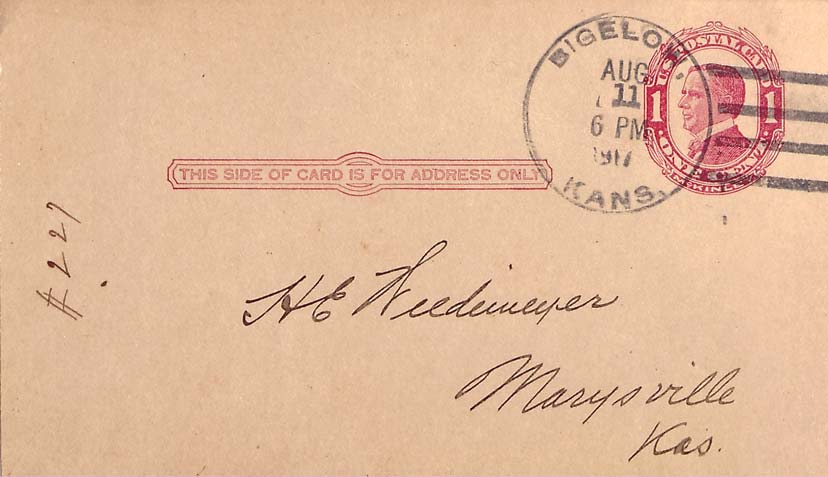 BIGELOW,
AUG
11
6 PM
1917
KANS.
U.S. POSTAL CARD
1 1
ONE CENT
McKINLEY
THIS SIDE OF CARD IS FOR ADDRESS ONLY
#227
H E Weedemeyer
Marysville
Kas.